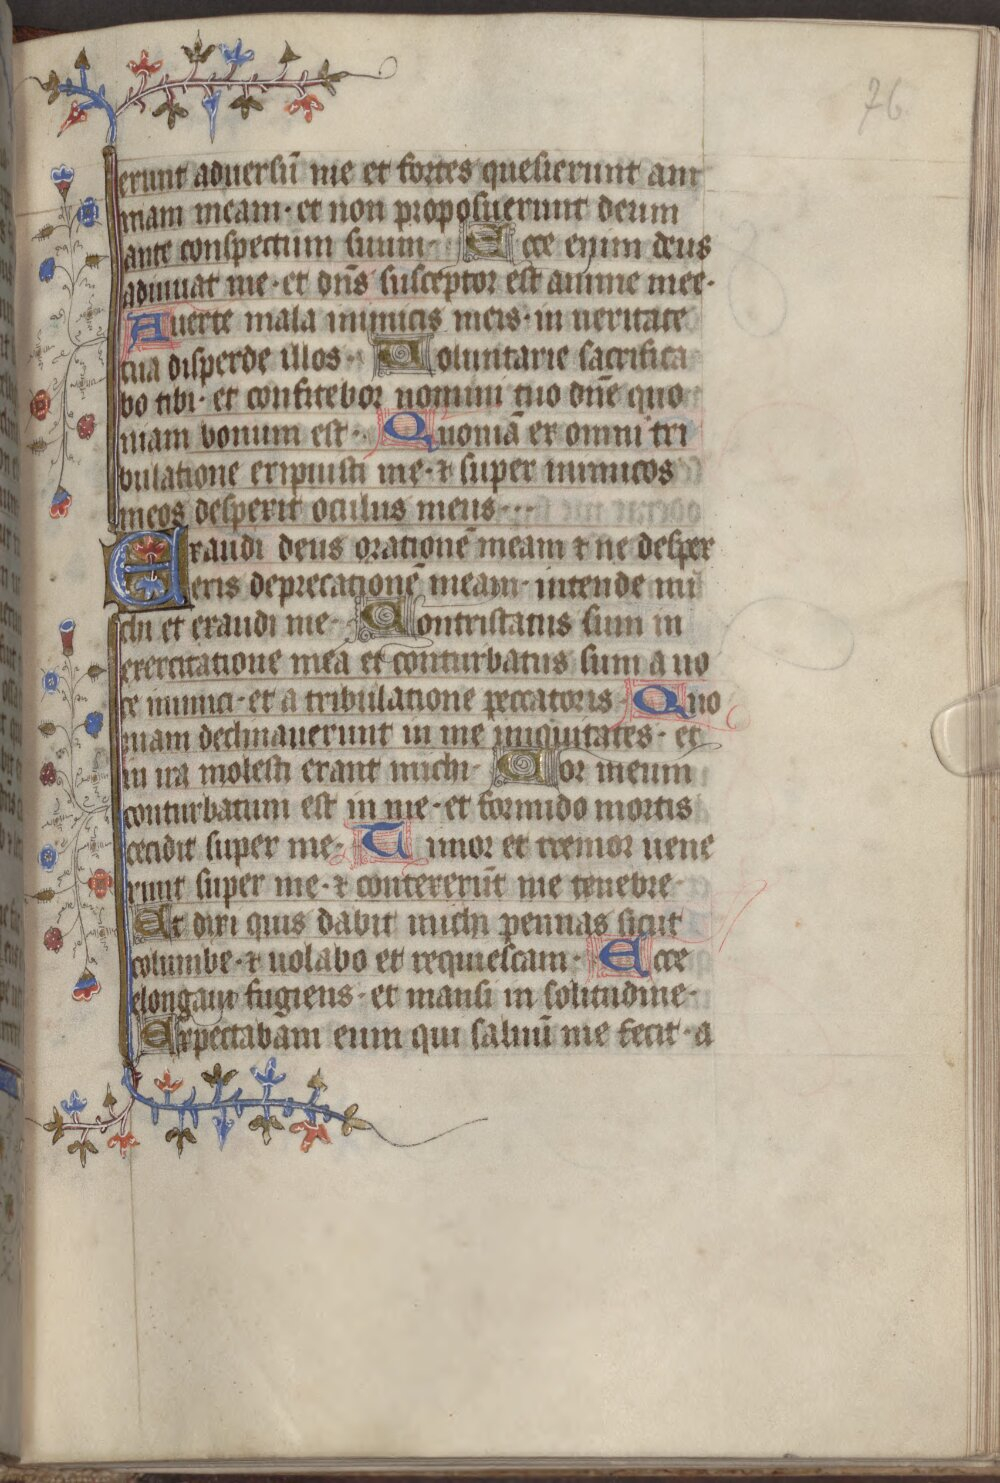 76
erunt aduersū me et fortes quesierunt ani
mam meam · et non proposuerunt deum
ante conspectum suum · Ecce enim deus
adiuuat me · et dn̄s susceptor est anime mee ·
Auerte mala inimicis meis · in ueritate
tua disperde illos · Uoluntarie sacrifica
bo tibi · et confitebor nomini tuo dn̄e quo
niam bonum est · Quoniā ex omni tri
bulatione eripuisti me · ⁊ super inimicos
meos despexit oculus meus ·
Exaudi deus orationē meam ⁊ ne despex
eris deprecationē meam · intende mi
chi et exaudi me · Contristatus sum in
exercitatione mea et conturbatus sum a uo
ce inimici · et a tribulatione peccatoris · Quo
niam declinauerunt in me iniquitates · et
in ira molesti erant michi · Cor meum
conturbatum est in me · et formido mortis
cecidit super me · Timor et tremor uene
runt super me · ⁊ contexerūt me tenebre ·
Et dixi quis dabit michi pennas sicut
columbe · ⁊ uolabo et requiescam · Ecce
elongaui fugiens · et mansi in solitudine ·
Expectabam eum qui saluū me fecit · a